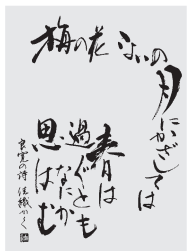 梅の花 こよいの
月にかざしては
春は
過ぐとも
なにか
思はむ
良寛の詩 佳織かく